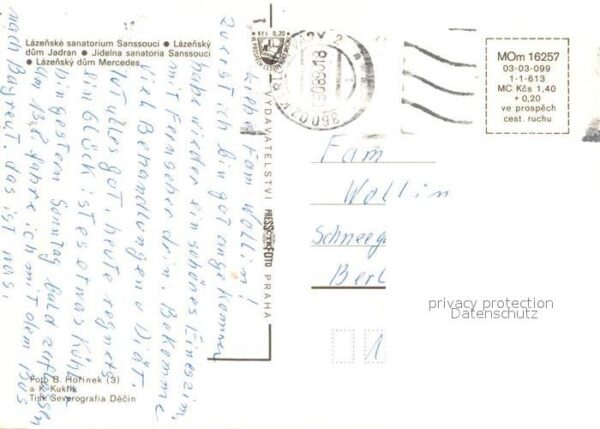 Lázeňské sanatorium Sanssouci • Lázeňský
dům Jadran • Jidelna sanatoria Sanssouci
Lázeňský dům Mercedes
Liebe Fam Wollin!
Zuerst ich bin gut angekommen
habe wieder ein schönes Einzelzim.
mit Fernseher drin. Bekomme
viel Behandlungen u Diät.
Ist alles gut, heute regnets
zum Glück ist es etwas kühler
bin gestern Sonntag bald zerflossen
am 13.8 fahre ich mit dem Bus
nach Bayreut, das ist was.
Foto B. Hořínek (3)
a K. Kuklík
Tisk Severografia Děčín
VYDAVATELSTVÍ PRESSFOTO PRAHA
Kčs 0,20
MOm 16257
03-03-099
1-1-613
MC Kčs 1,40
+ 0,20
ve prospěch
cest. ruchu
Fam
Wollin
Schneeg
Berl
1
privacy protection
Datenschutz